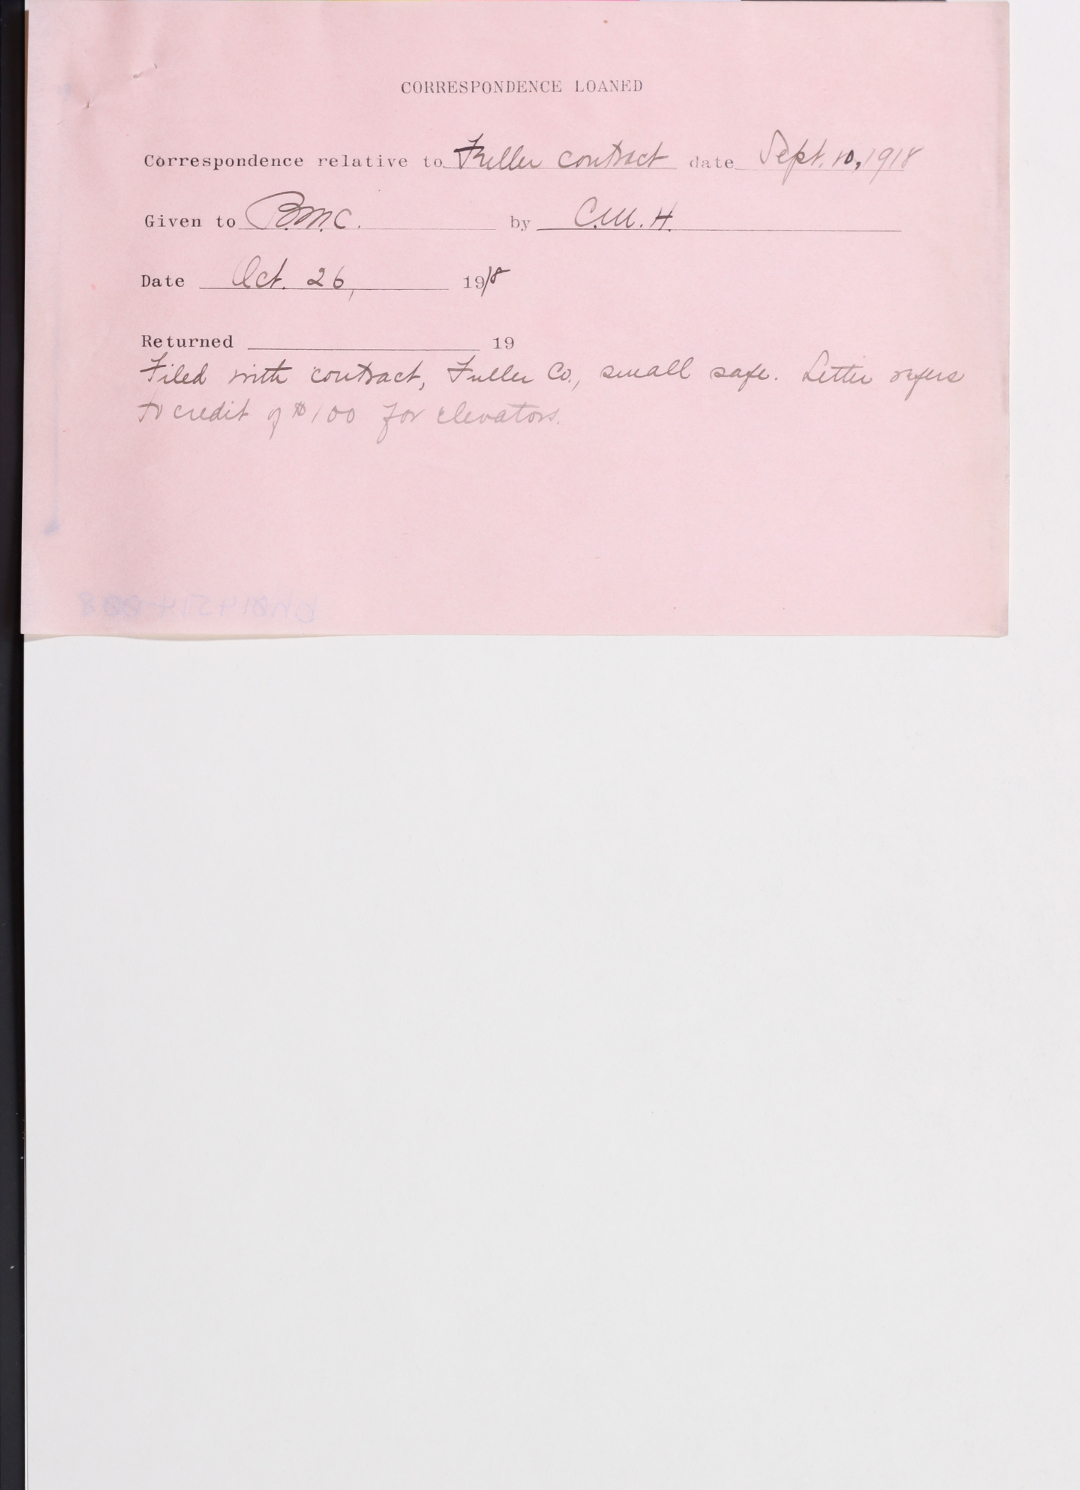 CORRESPONDENCE LOANED
Correspondence relative to Fuller contract date Sept. 10, 1918
Given to B.M.C. by C.M.H.
Date Oct. 26, 1918
Returned 19
Filed with contract, Fuller Co., small safe. Letter refers
to credit of $100 for elevators.